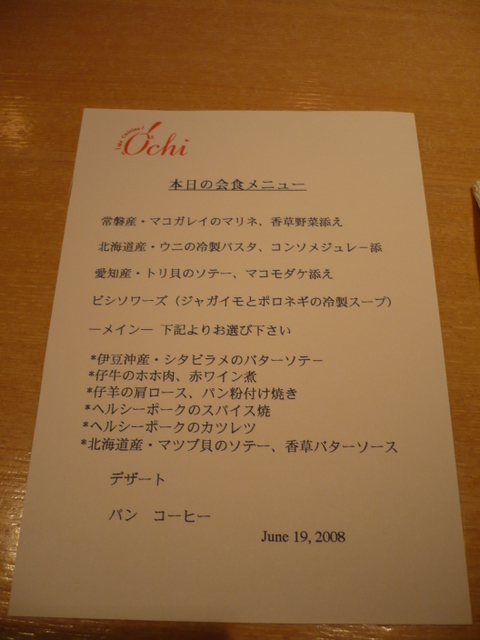 Ochi
本日の会食メニュー
常磐産・マコガレイのマリネ、香草野菜添え
北海道産・ウニの冷製パスタ、コンソメジュレー添
愛知産・トリ貝のソテー、マコモダケ添え
ビシソワーズ（ジャガイモとポロネギの冷製スープ）
―メイン― 下記よりお選び下さい
*伊豆沖産・シタビラメのバターソテー
*仔牛のホホ肉、赤ワイン煮
*仔羊の肩ロース、パン粉付け焼き
*ヘルシーポークのスパイス焼
*ヘルシーポークのカツレツ
*北海道産・マツブ貝のソテー、香草バターソース
デザート
パン　コーヒー
June 19, 2008